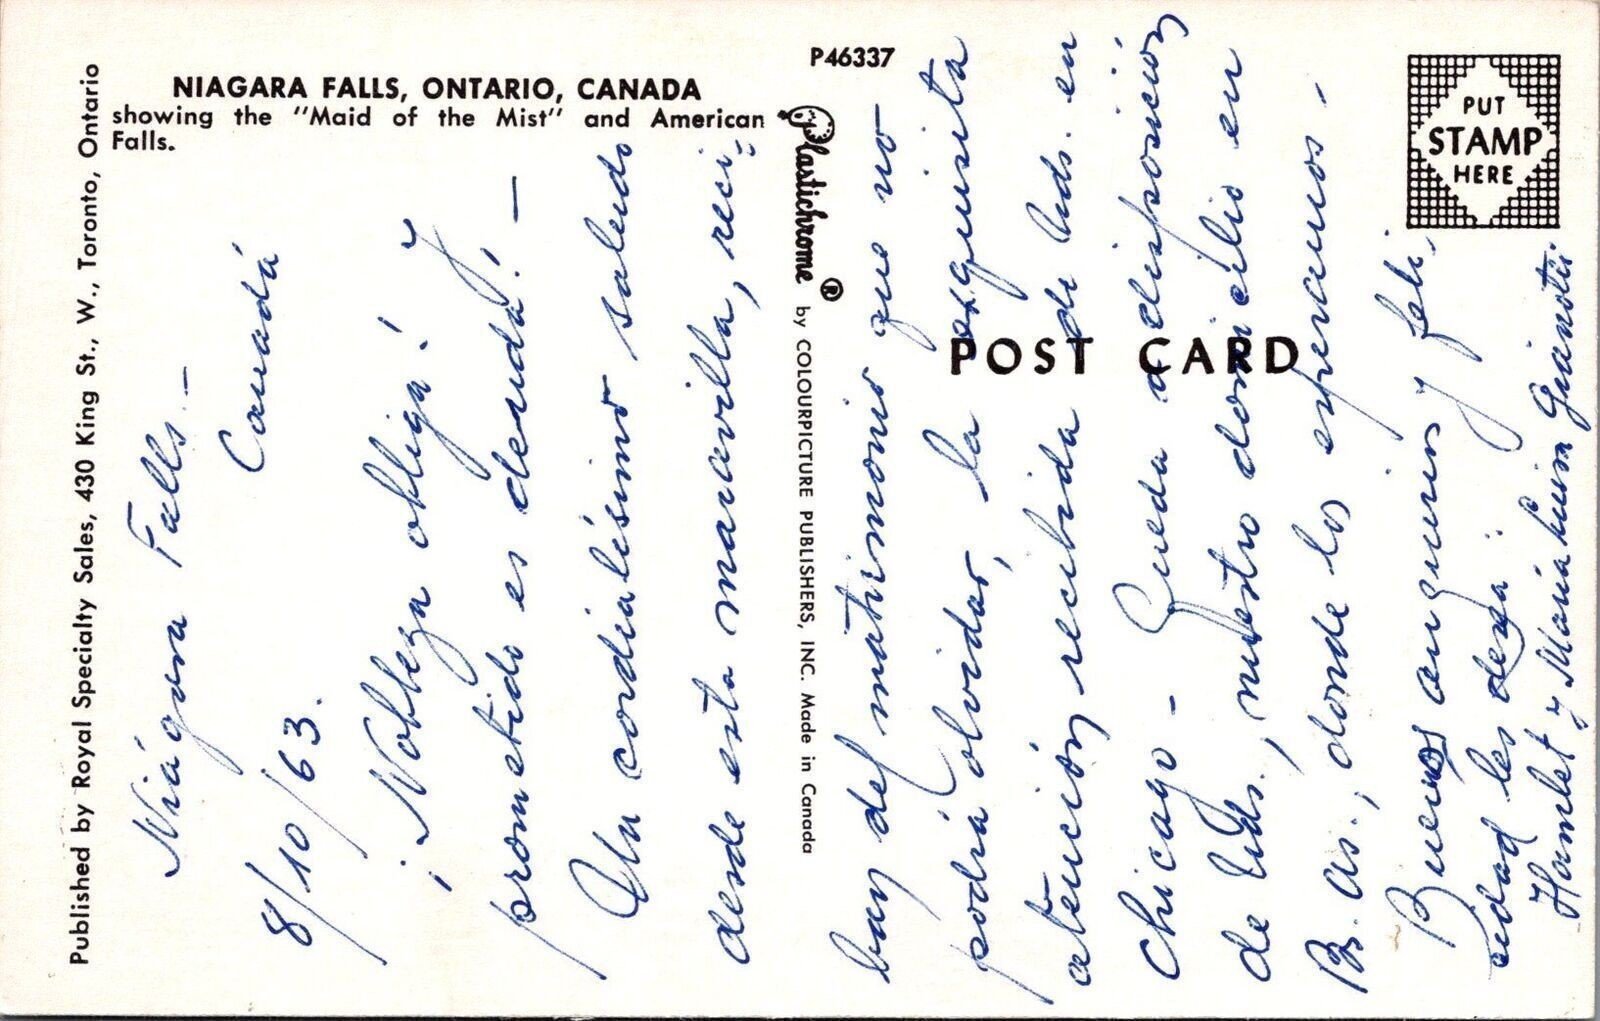 NIAGARA FALLS, ONTARIO, CANADA
showing the "Maid of the Mist" and American
Falls.
Published by Royal Specialty Sales, 430 King St., W., Toronto, Ontario
P46337
Plastichrome ® by COLOURPICTURE PUBLISHERS, INC. Made in Canada
POST CARD
PUT
STAMP
HERE
Niágara Falls.—
Canadá
8/10/63.
¡Nobleza obliga! y
prometido es deuda!—
Un cordialísimo saludo
desde esta maravilla, reci-
ban del matrimonio que no
podrá olvidar, la exquisita
atención recibida de Uds. en
Chicago - Queda a disposición
de Uds., nuestro domicilio en
B. As., donde los esperamos.-
Buenos augurios y feli-
cidad les desea:
Hamlet y María Luisa